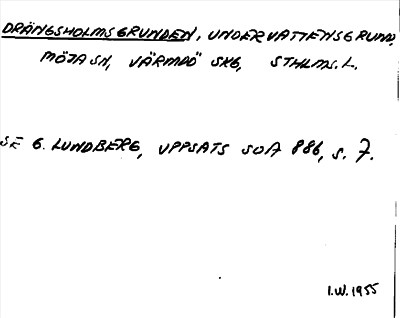 DRÄNGSHOLMSGRUNDEN, UNDERVATTENSGRUND,
MÖJA SN, VÄRMDÖ SKG, STHLMS. L.
SE G. LUNDBERG, UPPSATS SOA 886, S. 7.
I.W. 1955